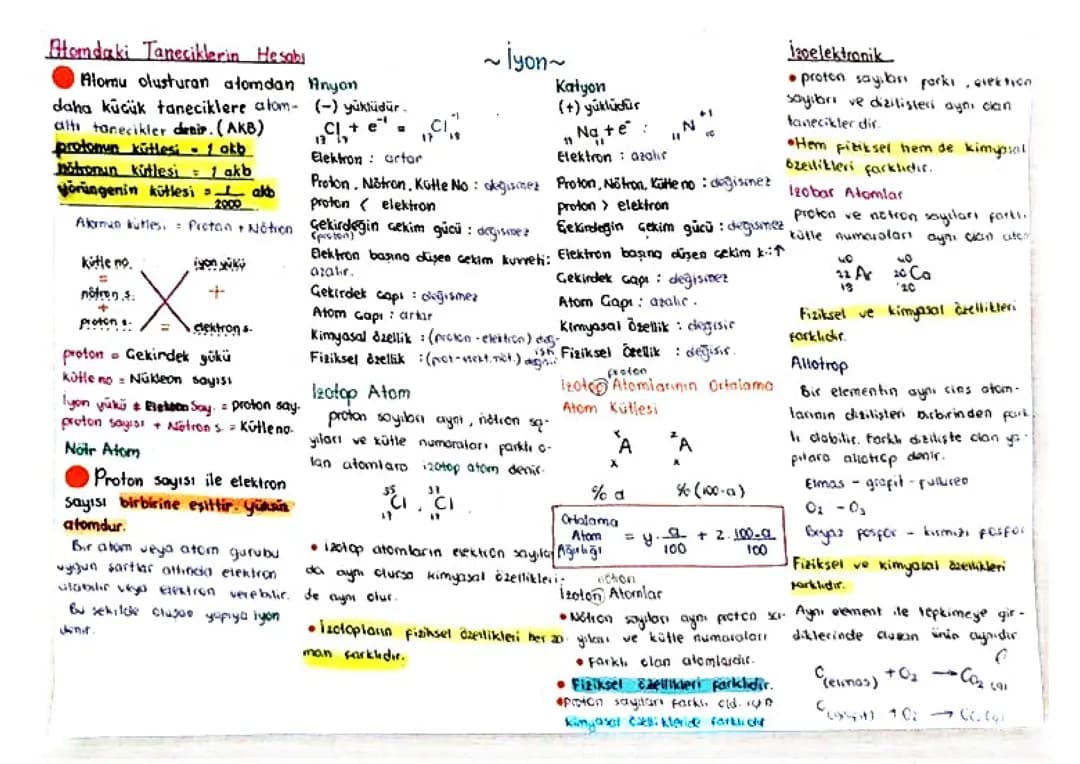 Atomdaki Taneciklerin Hesabı
Atomu oluşturan atomdan
daha küçük taneciklere atom-
altı tanecikler denir. (AKB)
protonun kütlesi = 1 akb
nötronun kütlesi = 1 akb
yörüngenin kütlesi = 1/2000 akb
Atomun kütlesi = Proton + Nötron
kütle no. iyon yükü
= +
nötron s.
+
proton s. = elektron s.
proton = Çekirdek yükü
kütle no = Nükleon sayısı
İyon yükü + Elektron Say. = proton say.
proton sayısı + Nötron s. = Kütle no.
Nötr Atom
Proton sayısı ile elektron
sayısı birbirine eşittir. Yüksüz
atomdur.
Bir atom veya atom gurubu
uygun şartlar altında elektron
alabilir veya elektron verebilir.
Bu şekilde oluşan yapıya iyon
denir.
~ İyon ~
Anyon
(-) yüklüdür.
17 Cl + e⁻¹ = 17 Cl⁻¹ 18
Elektron : artar
Proton, Nötron, Kütle No : değişmez
proton < elektron
Çekirdeğin çekim gücü : değişmez
(proton)
Elektron başına düşen çekim kuvveti:
azalır.
Çekirdek çapı : değişmez
Atom Çapı : artar
Kimyasal özellik : (proton-elektron) değ-
işir
Fiziksel özellik : (prot-elekt.nöt.)
İzotop Atom
proton sayıları aynı, nötron sa-
yıları ve kütle numaraları farklı o-
lan atomlara izotop atom denir.
35 37
Cl , Cl
17 17
• izotop atomların elektron sayıla
da aynı olursa kimyasal özellikleri-
de aynı olur.
• İzotopların fiziksel özellikleri her za-
man farklıdır.
Katyon
(+) yüklüdür
11 Na + e⁻ : 11 N⁺¹ 10
Elektron : azalır
Proton, Nötron, Kütle no : değişmez
proton > elektron
Çekirdeğin çekim gücü : değişmez
Elektron başına düşen çekim k:↑
Çekirdek çapı : değişmez
Atom Çapı : azalır.
Kimyasal Özellik : değişir
Fiziksel Özellik : değişir.
proton
İzotop Atomlarının Ortalama
Atom Kütlesi
y z
A A
x x
% a %(100-a)
Ortalama
Atom
Ağırlığı = y. a/100 + z. 100-a/100
nötron
İzoton Atomlar
• Nötron sayıları aynı proton sa-
yıları ve kütle numaraları
• farklı olan atomlardır.
• Fiziksel özellikleri farklıdır.
• proton sayıları farklı old. için
kimyasal özellikleride farklıdır
İzoelektronik
• proton sayıları farkı, elektron
sayıları ve dizilişleri aynı olan
taneciklerdir.
• Hem fiziksel hem de kimyasal
özellikleri farklıdır.
İzobar Atomlar
proton ve nötron sayıları farklı.
kütle numaraları aynı olan atom
40 40
22 Ar 20 Ca
18 20
Fiziksel ve kimyasal özellikleri
farklıdır.
Allotrop
Bir elementin aynı cins atom-
larının dizilişleri birbirinden fark-
lı olabilir. Farklı dizilişte olan ya-
pılara allotrop denir.
Elmas - grafit - fulluren
O₂ - O₃
Beyaz fosfor - kırmızı fosfor
Fiziksel ve kimyasal özellikleri
farklıdır.
Aynı element ile tepkimeye gir-
diklerinde oluşan ürün aynıdır
C(elmas) + O₂ → CO₂ (g)
C(grafit) + O₂ → CO₂ (g)